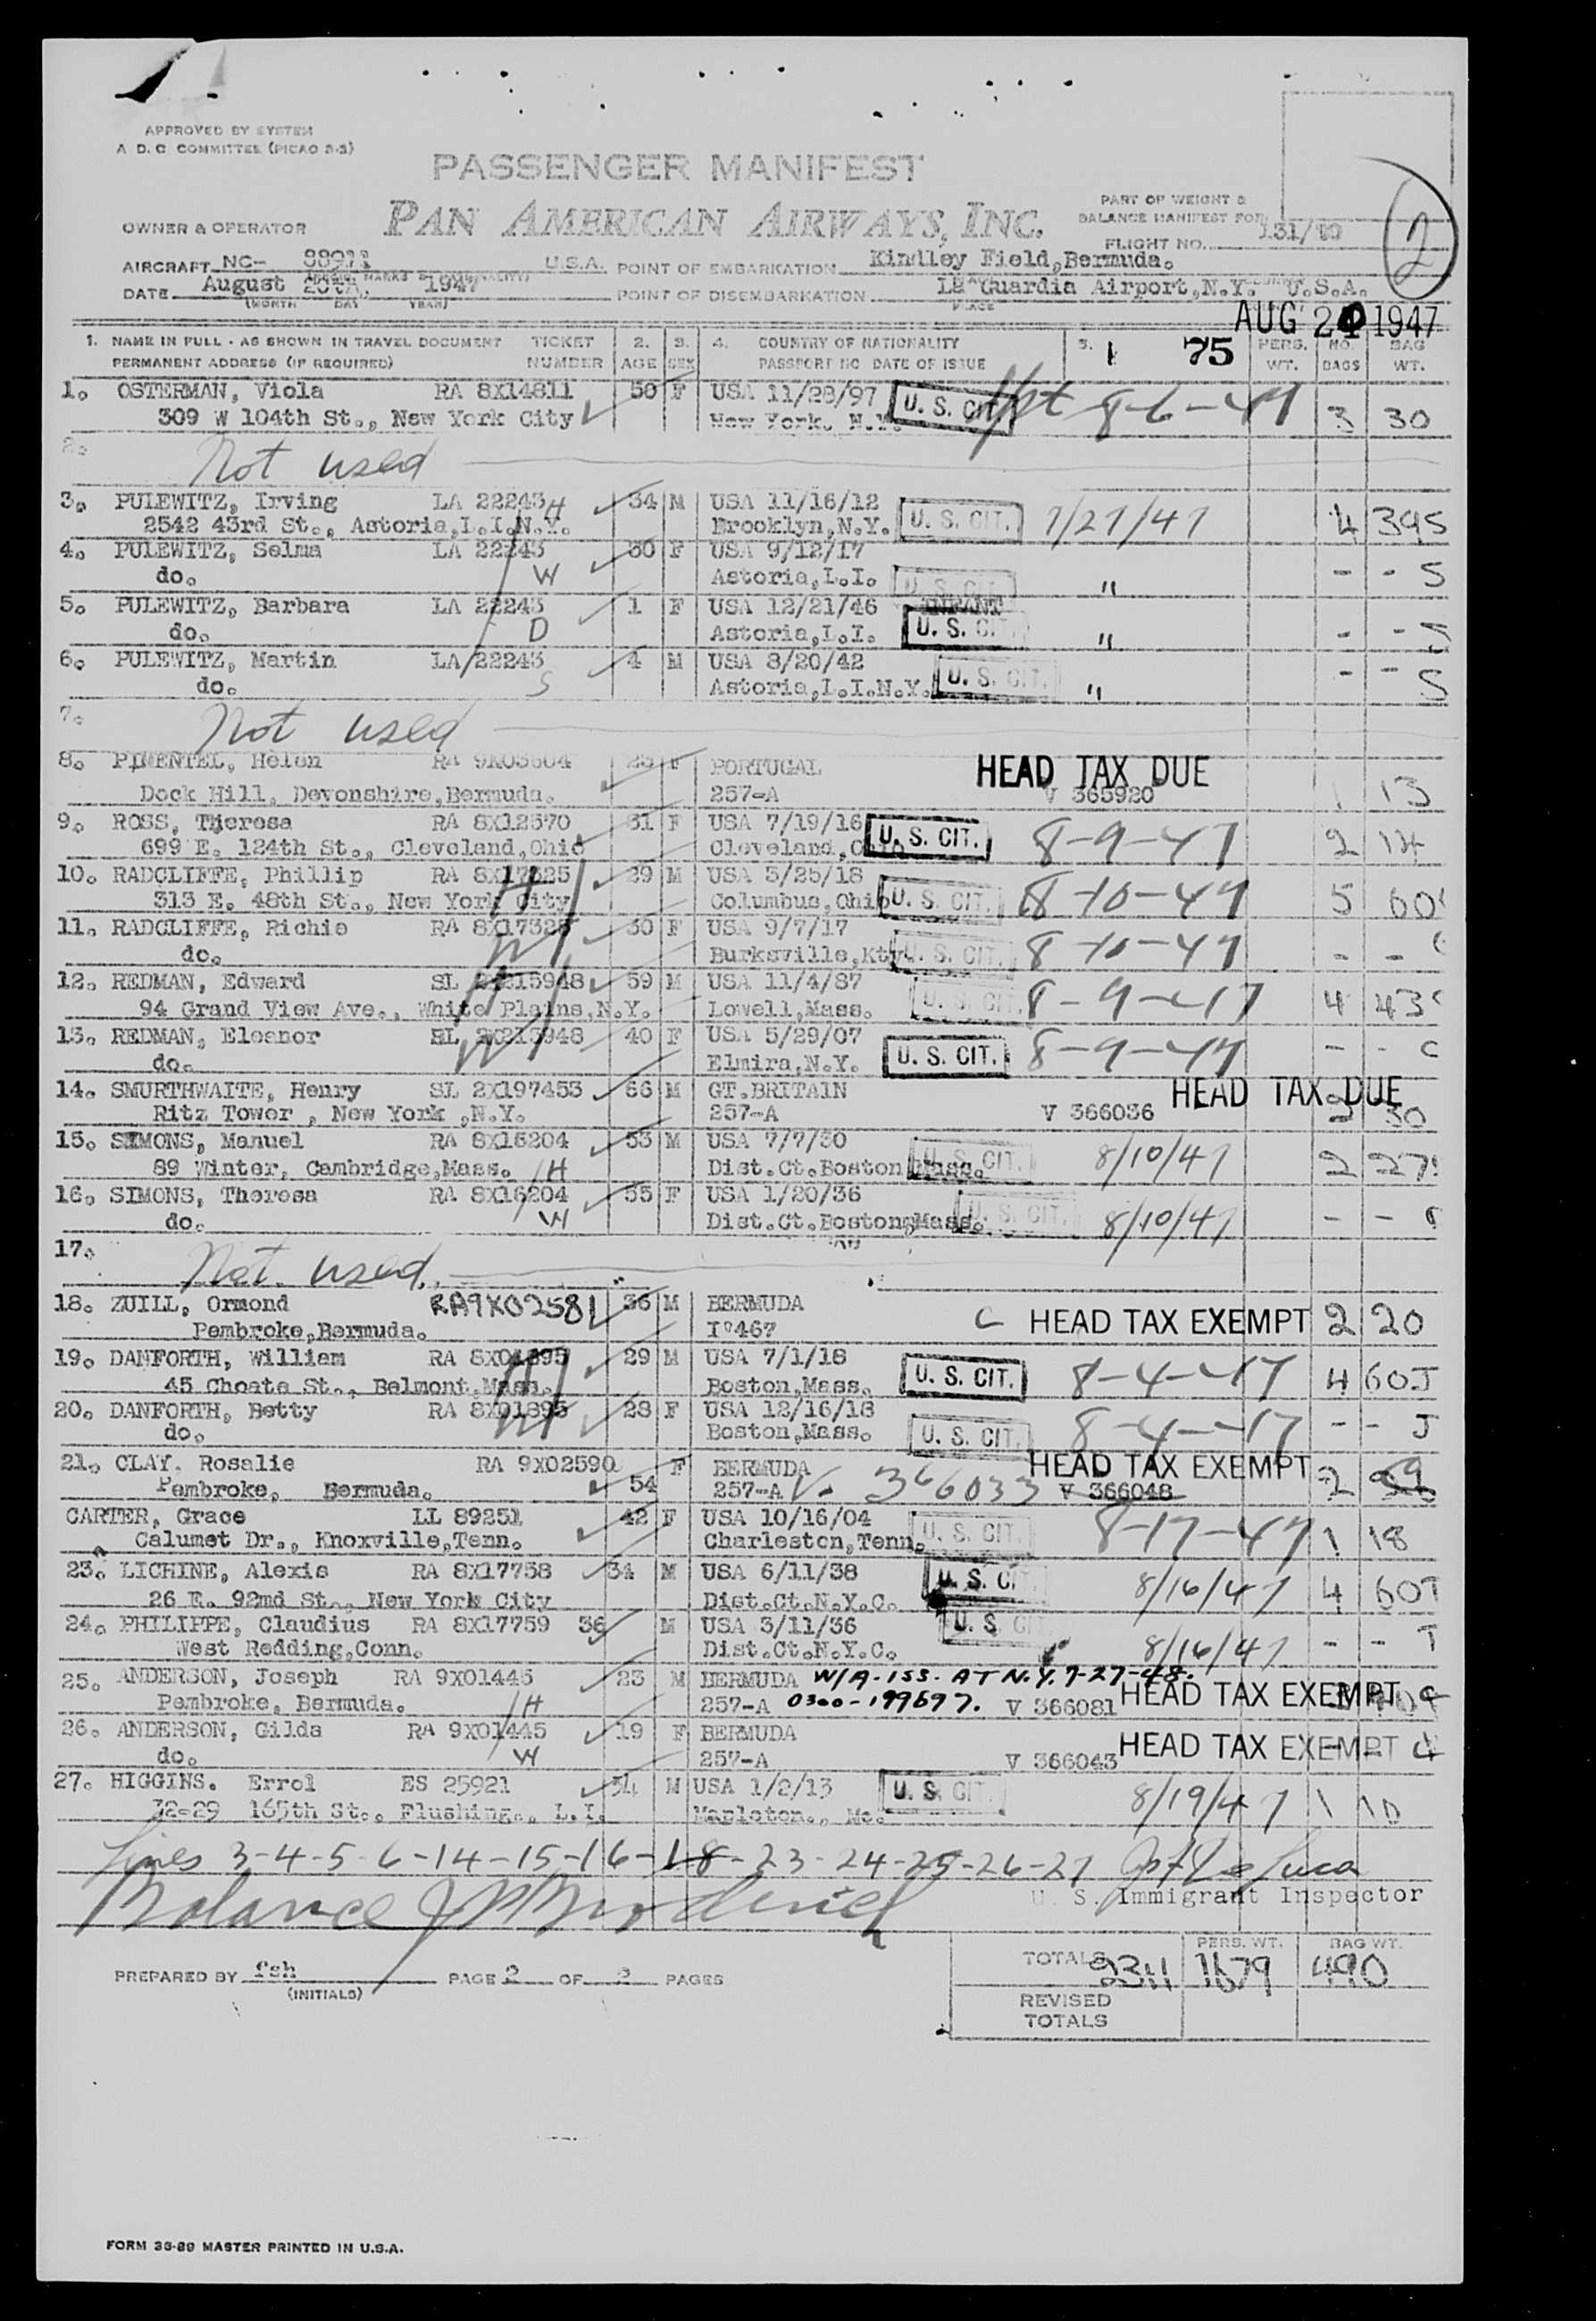 APPROVED BY SYSTEM
A. D. C COMMITTEE (PICAO 3-3)
PASSENGER MANIFEST
OWNER & OPERATOR PAN AMERICAN AIRWAYS, INC.
PART OF WEIGHT &
BALANCE MANIFEST FOR
FLIGHT NO. 131/
2
AIRCRAFT NC- U.S.A. POINT OF EMBARKATION Kindley Field,Bermuda.
DATE August 1947 POINT OF DISEMBARKATION La Guardia Airport,N.Y. U.S.A.
(MONTH DAY YEAR) PLACE
AUG 1947
1. NAME IN FULL - AS SHOWN IN TRAVEL DOCUMENT TICKET 2. 3. 4. COUNTRY OF NATIONALITY 5. 1 75 PERS. NO. BAG
PERMANENT ADDRESS (IF REQUIRED) NUMBER AGE SEX PASSPORT NO DATE OF ISSUE WT. BAGS WT.
1. OSTERMAN, Viola RA 8X14811 50 F USA 11/28/97 U. S. CIT. 8-6-47 3 30
309 W 104th St., New York City New York, N.Y.
2. Not used
3. PULEWITZ, Irving LA 22243 H 34 M USA 11/16/12 U. S. CIT. 7/27/47 4 39S
2542 43rd St., Astoria,L.I.N.Y. Brooklyn,N.Y.
4. PULEWITZ, Selma LA 22243 30 F USA 9/12/17
do. W Astoria,L.I. U. S. CIT. " - - S
5. PULEWITZ, Barbara LA 22243 1 F USA 12/21/46 INFANT
do. D Astoria,L.I. U. S. CIT. " - -
6. PULEWITZ, Martin LA 22243 4 M USA 8/20/42
do. S Astoria,L.I.N.Y. U. S. CIT. " - - S
7. Not used
8. PIMENTEL, Helen RA 9X03604 F PORTUGAL HEAD TAX DUE
Dock Hill, Devonshire,Bermuda. 257-A V 365920 1 13
9. ROSS, Theresa RA 8X12570 31 F USA 7/19/16 U. S. CIT. 8-9-47 2 14
699 E. 124th St., Cleveland,Ohio Cleveland,Ohio
10. RADCLIFFE, Phillip RA 8X17325 H 29 M USA 5/25/18 U. S. CIT. 8-10-47 5 60
313 E. 48th St., New York City Columbus,Ohio
11. RADCLIFFE, Richie RA 8X17325 W 30 F USA 9/7/17 U. S. CIT. 8-10-47 - -
do. Burksville,Kty
12. REDMAN, Edward SL 2X215948 H 59 M USA 11/4/87 U. S. CIT. 8-9-47 4 43
94 Grand View Ave., White Plains,N.Y. Lowell,Mass.
13. REDMAN, Eleanor SL 2X215948 W 40 F USA 5/29/07
do. Elmira,N.Y. U. S. CIT. 8-9-47 - -
14. SMURTHWAITE, Henry SL 2X197453 66 M GT.BRITAIN HEAD TAX DUE
Ritz Tower , New York ,N.Y. 257-A V 366036 2 30
15. SIMONS, Manuel RA 8X16204 53 M USA 7/7/30 U. S. CIT. 8/10/47 2 27
89 Winter, Cambridge,Mass. H Dist.Ct.Boston Mass.
16. SIMONS, Theresa RA 8X16204 55 F USA 1/20/36
do. W Dist.Ct.Boston,Mass. U. S. CIT. 8/10/47 - -
17. Not used
18. ZUILL, Ormond RA9X02581 36 M BERMUDA C HEAD TAX EXEMPT 2 20
Pembroke,Bermuda. I°467
19. DANFORTH, William RA 8X01895 H 29 M USA 7/1/18 U. S. CIT. 8-4-47 4 60J
45 Choate St., Belmont,Mass. Boston,Mass.
20. DANFORTH, Betty RA 8X01895 W 28 F USA 12/16/18
do. Boston,Mass. U. S. CIT. 8-4-47 - - J
21. CLAY. Rosalie RA 9X02590 F BERMUDA HEAD TAX EXEMPT
Pembroke, Bermuda. 54 257-A V. 366033 V 366048 2
CARTER, Grace LL 89251 42 F USA 10/16/04 U. S. CIT. 8-17-47 1 18
Calumet Dr., Knoxville,Tenn. Charleston,Tenn.
23. LICHINE, Alexis RA 8X17758 34 M USA 6/11/38 U. S. CIT. 8/16/47 4 60T
26 E. 92nd St., New York City Dist.Ct.N.Y.C.
24. PHILIPPE, Claudius RA 8X17759 36 M USA 3/11/36 U. S. CIT.
West Redding,Conn. Dist.Ct.N.Y.C. 8/16/47 - - T
25. ANDERSON, Joseph RA 9X01445 23 M BERMUDA W/A-ISS. AT N.Y. 7-27-48.
Pembroke, Bermuda. H 257-A 0300-199697. V 366081 HEAD TAX EXEMPT
26. ANDERSON, Gilda RA 9X01445 19 F BERMUDA
do. W 257-A V 366043 HEAD TAX EXEMPT
27. HIGGINS. Errol ES 25921 34 M USA 1/2/13 U. S. CIT. 8/19/47 1 10
32-29 165th St., Flushing., L.I. Mapleton., Me.
Lines 3-4-5-6-14-15-16-18-23-24-25-26-27
U. S. Immigrant Inspector
Balance
PREPARED BY fsh PAGE 2 OF PAGES
(INITIALS)
PERS. WT. BAG WT.
TOTALS 1679 490
REVISED
TOTALS
FORM 36-89 MASTER PRINTED IN U.S.A.